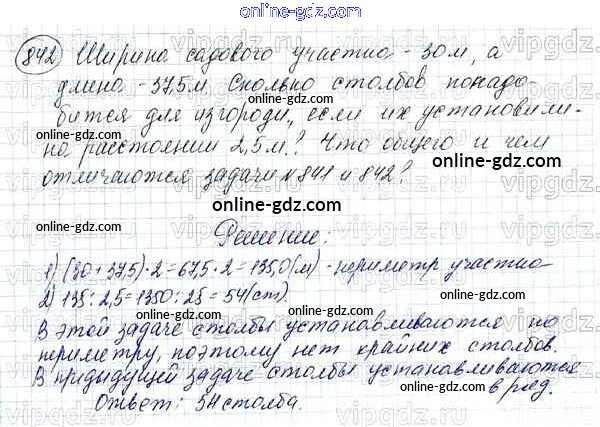 online-gdz.com
842 Ширина садового участка - 30 м, а
длина - 37,5 м. Сколько столбов понадо-
бится для изгороди, если их установили-
на расстоянии 2,5 м? Что общего и чем
отличаются задачи № 841 и 842?
Решение:
1) (30+37,5)·2=67,5·2=135,0(м) - периметр участка
2) 135:2,5=1350:25=54(ст).
В этой задаче столбы устанавливаются по
периметру, поэтому нет крайних столбов.
В предидущей задаче столбы устанавливаются
в ряд.
Ответ: 54 столба.
online-gdz.com
online-gdz.com
online-gdz.com
online-gdz.com
online-gdz.com
online-gdz.com
online-gdz.com